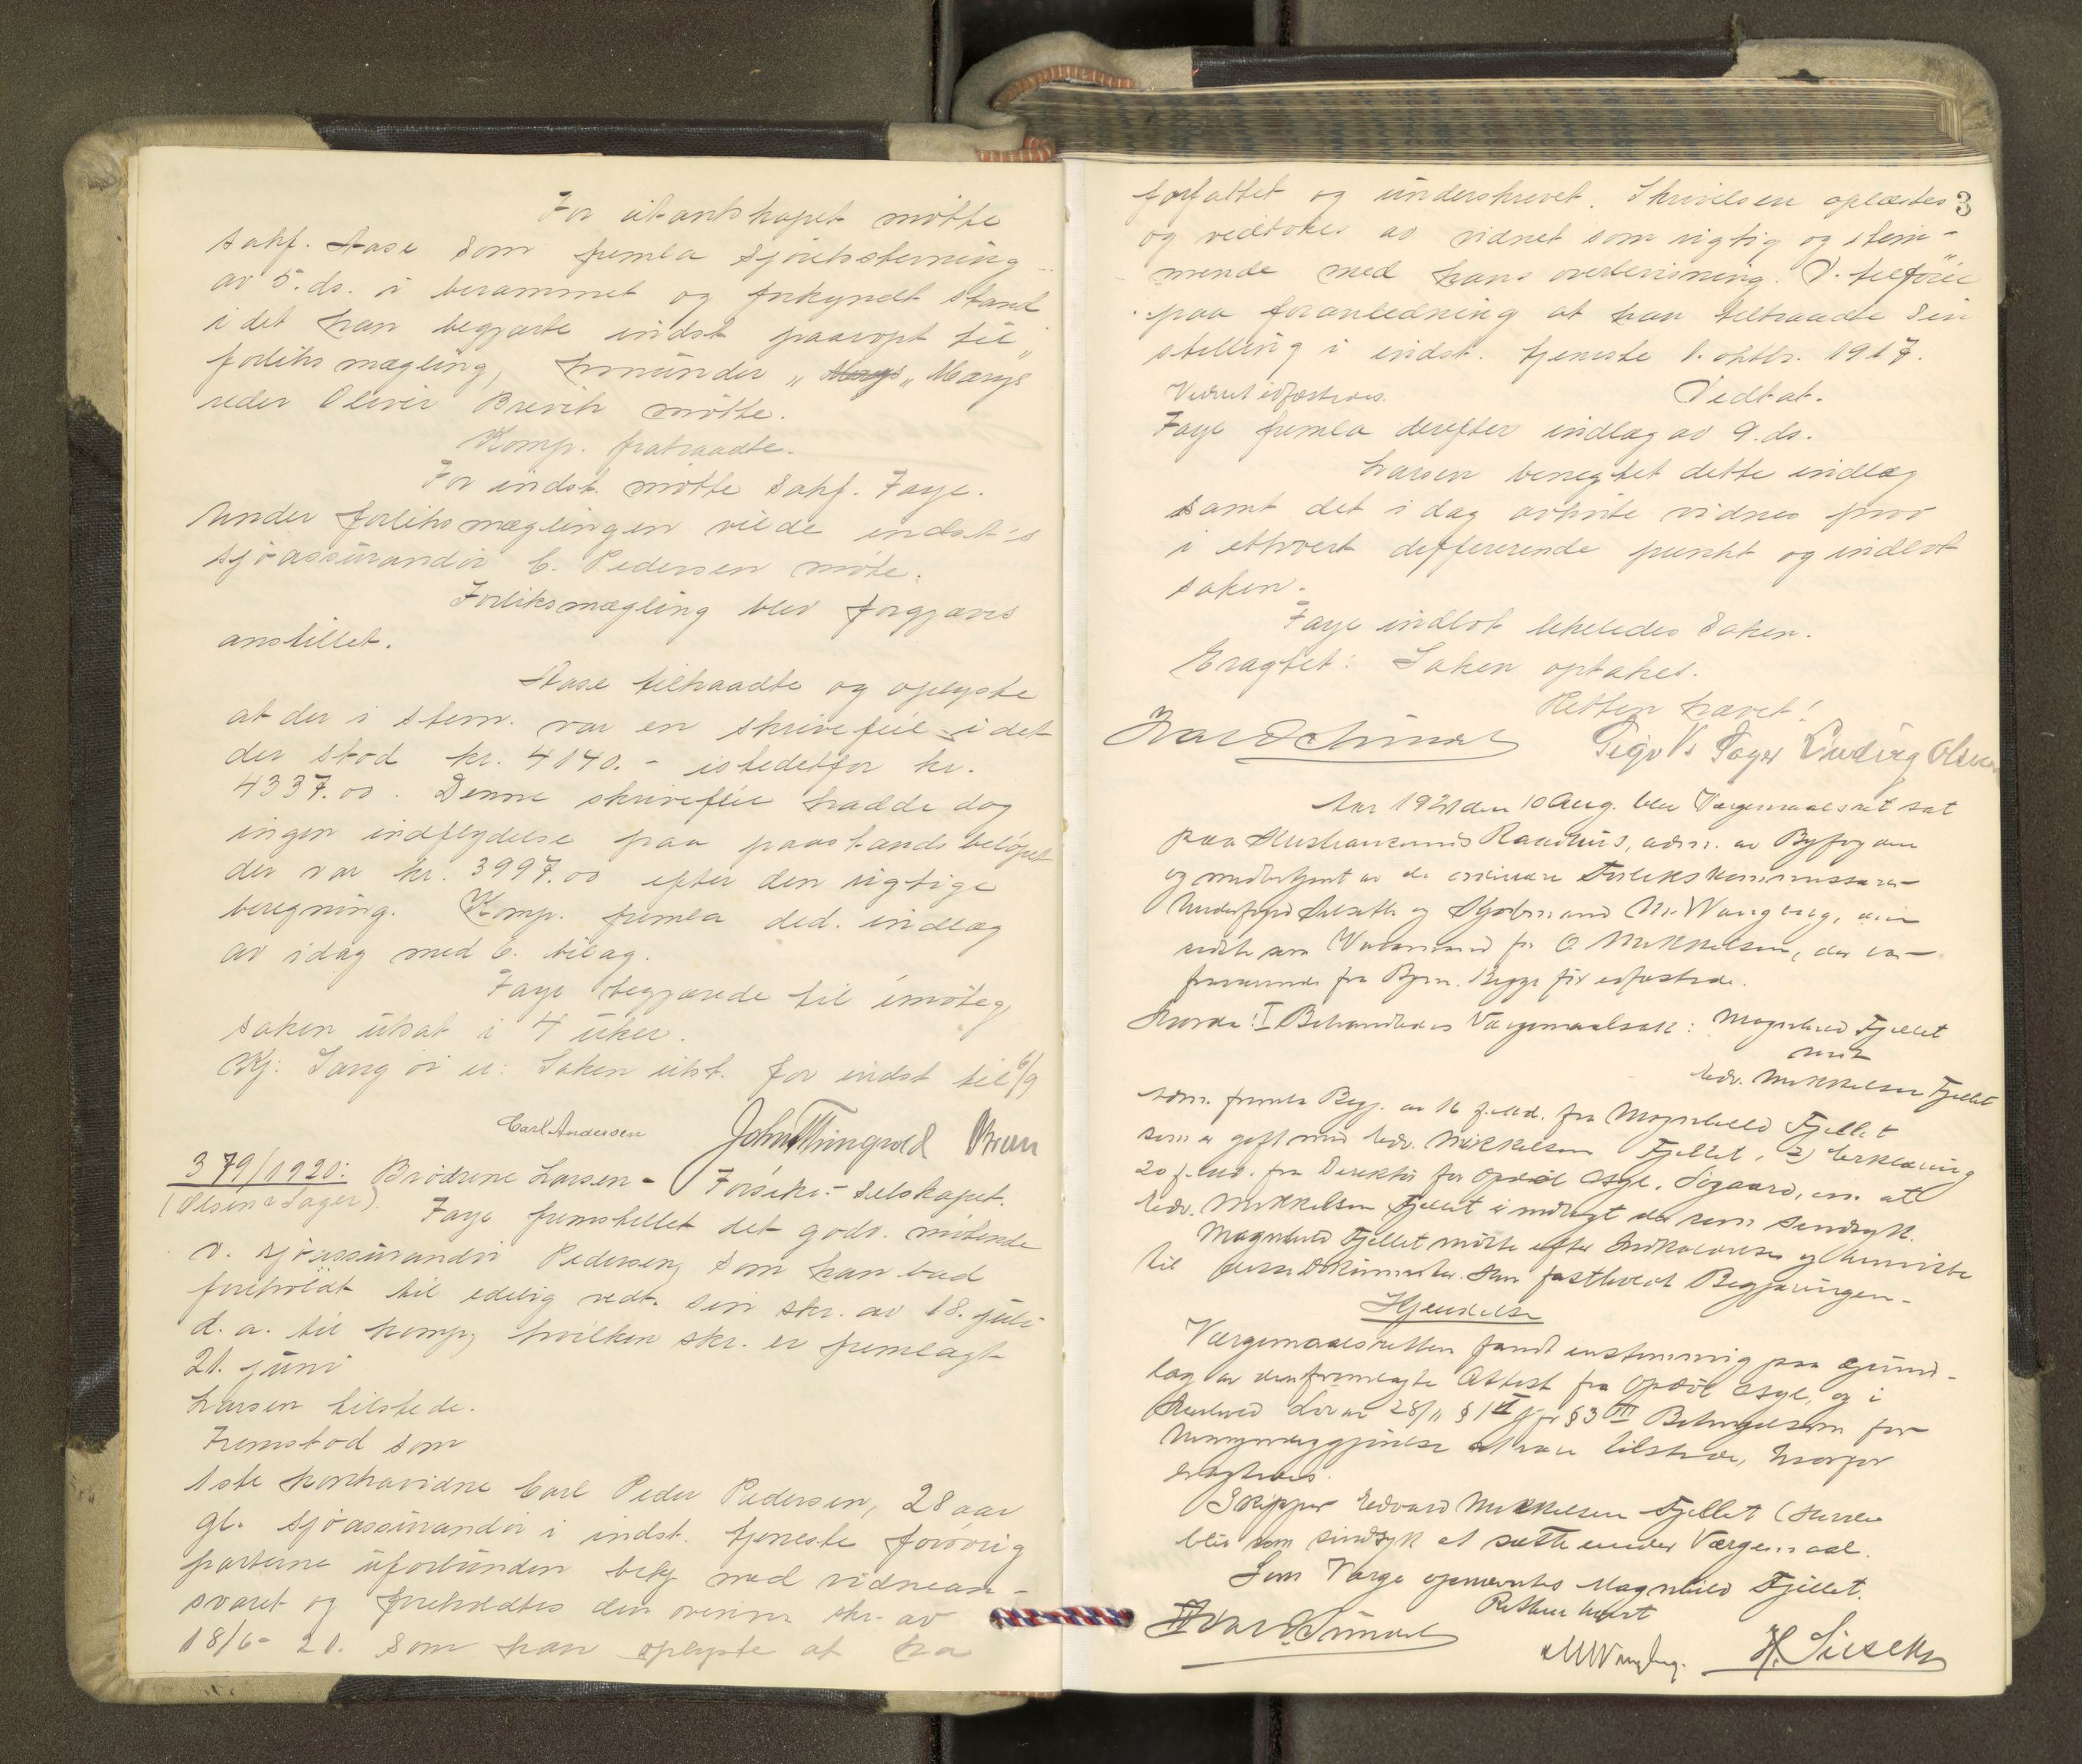 For citantskapet møtte
sakf. Aase som fremla sjøretsstevning
av 5. ds. i berammet og forkyndt stand
i det han begjærte indst paaropt til
forliksmægling, hvorunder „ Marys
reder Oliver Brevik møtte.
Komp. fratraadte.
For indst. møtte sakf. Faye.
Under forliksmæglingen vilde indst's
sjøassurandør C. Pedersen møte.
Forliksmægling blev forgjæves
anstillet.
Aase tiltraadte og oplyste
at der i stevn. var en skrivefeil i det
der stod kr. 4140.- istedetfor kr.
4337.00. Denne skrivefeil hadde dog
ingen indflydelse paa paastandsbeløpet
der var kr. 3997.00 efter den rigtige
beregning. Komp. fremla ded. indlæg
av idag med 6. bilag.
Faye begjærede til imøteg.
saken utsat i 4 uker.
Kj: Saken utst. for indst til 6/9
Carl Andersen John Thingvold Brun
379/1920: Brødrene Larsen - Forsikr.- selskapet.
(Olsen & Jager). Faye fremstillet det godv. møtende
v. sjøassurandør Pedersen, som han bad
foreholdt til edelig vedt. sin skr. av 18. juli
d. a. til komp, hvilken skr. er fremlagt
21. juni
Larsen tilstede.
Fremstod som
1ste kontravidne Carl Peder Pedersen, 28 aar
gl. sjøassurandør i indst. tjeneste forøvrig
parterne uforbunden bekj. med vidnean-
svaret og foreholdtes den ovenn. skr. av
18/6- 20. som han oplyste at ha
3
forfattet og underskrevet. Skrivelsen oplæstes
og vedtokes av vidnet som rigtig og stem-
mende med hans overbevisning. V. tilføiet
paa foranledning at han tiltraadte sin
stilling i indst. tjeneste 1. oktbr. 1917.
Vidnet edfæstedes. Vedtat.
Faye fremla derefter indlæg av 9. ds.
Larsen benegtet dette indlæg
samt det i dag avhørte vidnes prov
i ethvert differerende punkt og indlot
saken.
Faye indlot likeledes saken.
Eragtet: Saken optakes.
Retten hævet!
Ludvig Olsen
Aar 1921 den 10 Aug. blev Værgemaalsret sat
paa Kristiansunds Raadhus, adm. av Byfogden
og medbetjent av de ordinære Forlikskommissærer
M. Wangberg, der
møtte som Varamand for O. Mikkelsen, der var
fraværende fra Byen. Begge før edfæstede.
Hvorda: I Behandledes Værgemaalssak: Magnhild Fjellet
mot
Edv. Mikkelsen Fjellet
som fremla Begj. av 16 f. Md. fra Magnhild Fjellet
som er gift med Edv. Mikkelsen Fjellet, 2) Erklæring
20 f. Md. fra Direktør for Opdøl Asyl, Sogaard, om at
Edv. Mikkelsen Fjellet er indlagt der som sindssyk.
Magnhild Fjellet møtte efter Indkaldelse og henviste
til disse Dokumenter. Hun fastholdt Begjæringen.
Kjendelse
Værgemaalsretten fandt enstemmig paa Grund-
lag av den fremlagte Attest fra Opdøl Asyl, og i
Henhold Lov av 28/11 § 1 jfr § 3 III Betingelserne for
Umyndiggjørelse at være tilstede, hvorfor
eragtedes:
Skipper Edvard Mikkelsen Fjellet
blir som sindssyk at sætte under Værgemaal.
Som Værge opnævntes Magnhild Fjellet.
Retten hævet
M Wangberg.